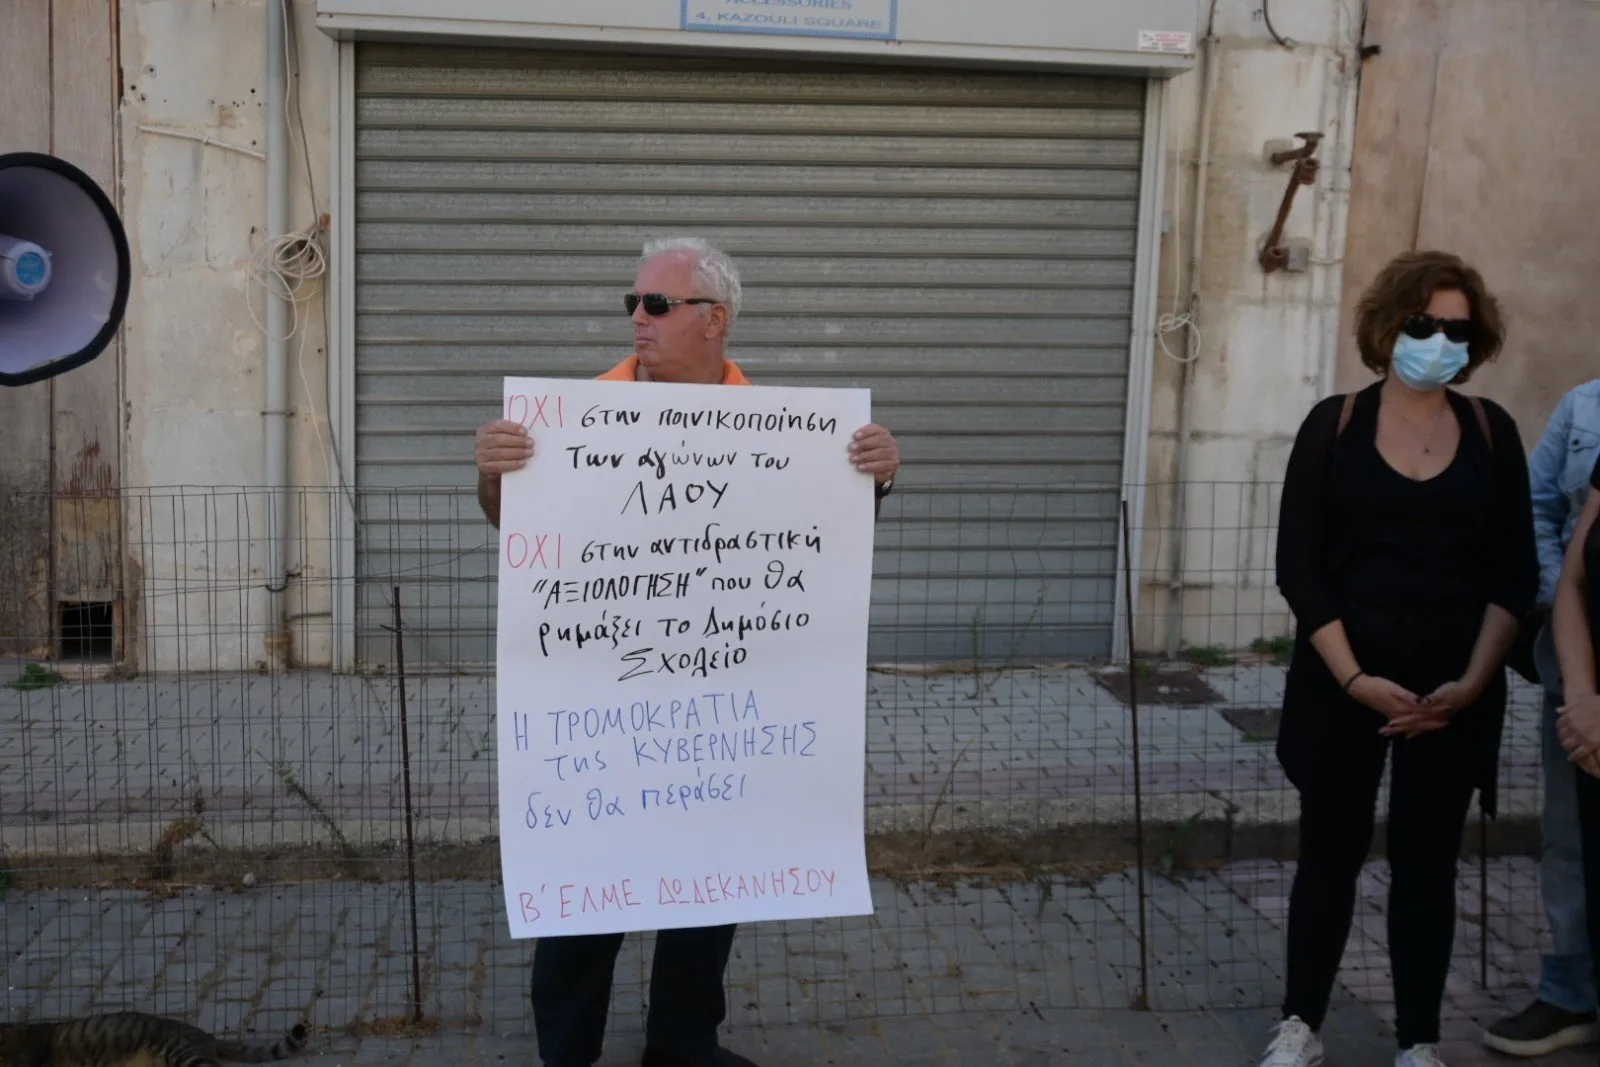 ACCESSORIES
4, KAZOULI SQUARE
ΟΧΙ στην ποινικοποίηση
Των αγώνων του
ΛΑΟΥ
ΟΧΙ στην αντιδραστική
"ΑΞΙΟΛΟΓΗΣΗ" που θα
ρημάξει το Δημόσιο
Σχολείο
Η ΤΡΟΜΟΚΡΑΤΙΑ
της ΚΥΒΕΡΝΗΣΗΣ
δεν θα περάσει
Β΄ ΕΛΜΕ ΔΩΔΕΚΑΝΗΣΟΥ